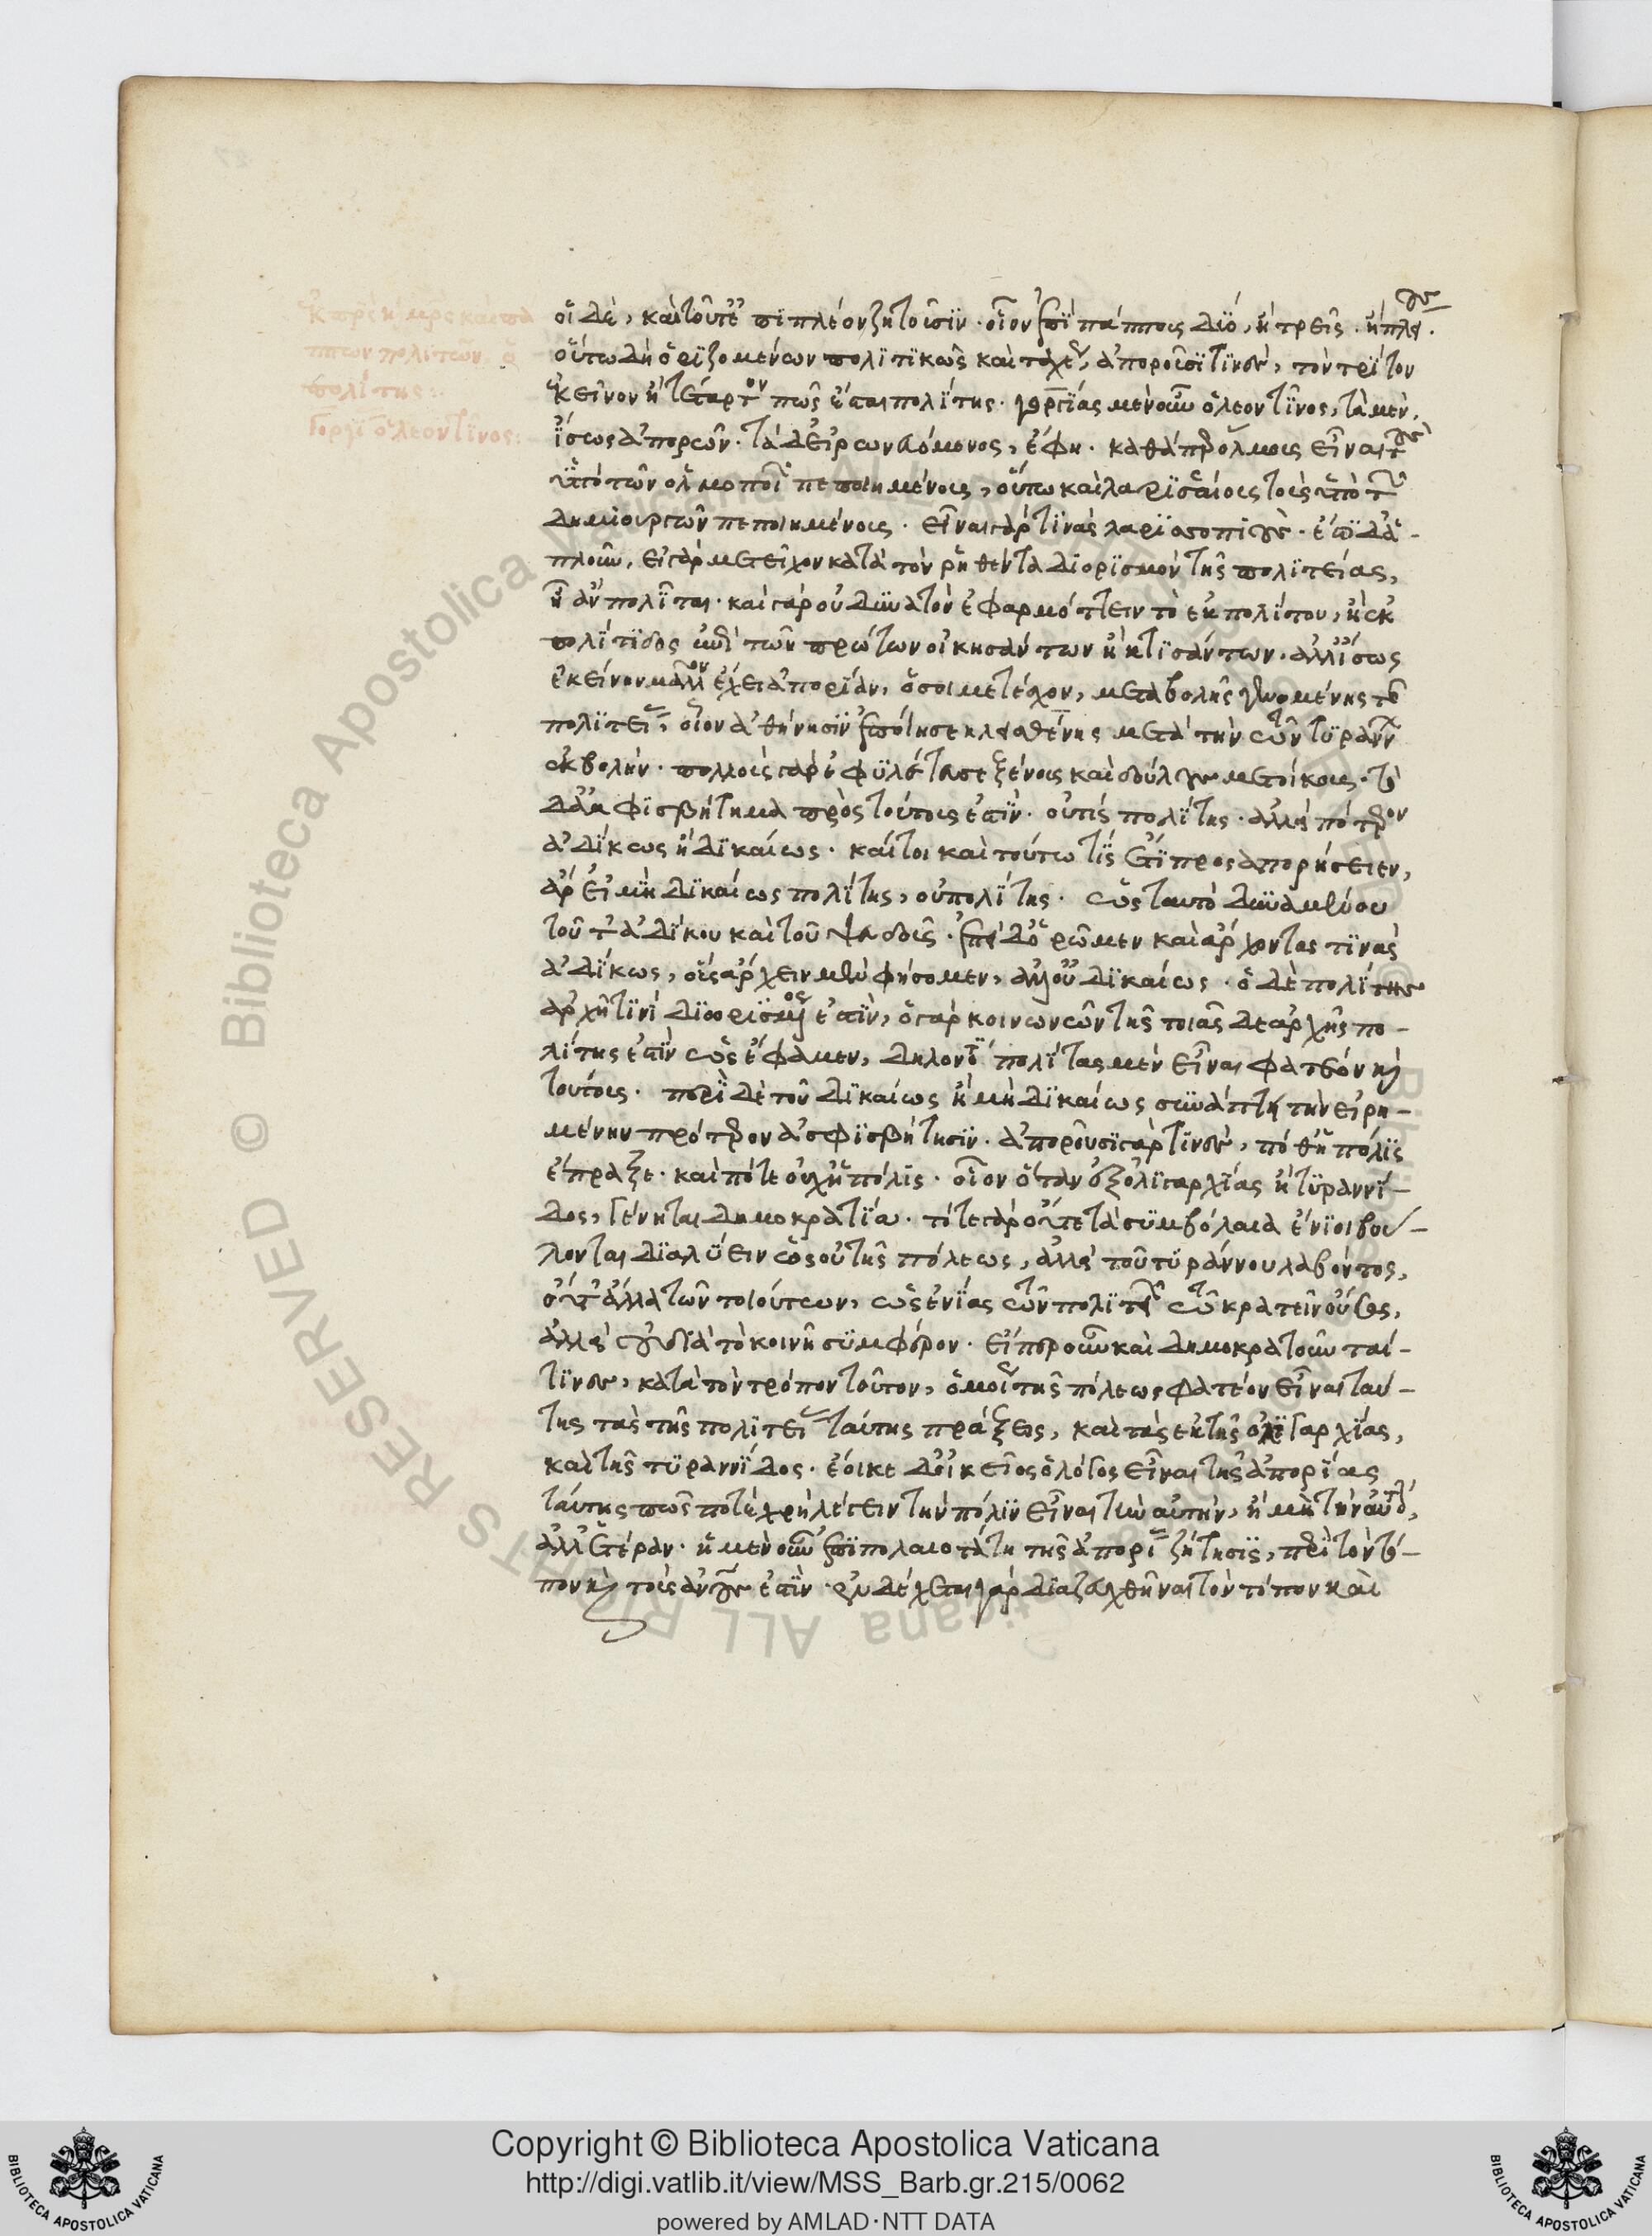 οἱ δὲ, καὶ τοῦτ' ἐπιπλέον ζητοῦσιν· οἷον ἐπὶ πάππους δύο, ἢ τρεῖς· ἢ πλείους.
οὕτω δὴ ὁριζομένων πολιτικῶς καὶ ταχέως, ἀποροῦσί τινες, τὸν τρίτον
ἐκεῖνον ἢ τέταρτον πῶς ἔσται πολίτης. γοργίας μὲν οὖν ὁ λεοντῖνος, τὰ μὲν,
ἴσως ἀπορῶν· τὰ δ' εἰρωνευόμενος, ἔφη· καθάπερ ὅλμους εἶναι τοὺς
ὑπὸ τῶν ὁλμοποιῶν πεποιημένους, οὕτω καὶ λαρισσαίους τοὺς ὑπὸ τῶν
δημιουργῶν πεποιημένους. εἶναι γάρ τινας λαρισσοποιούς. ἔστι δ' ἁ-
πλοῦν, εἰ γὰρ μετεῖχον κατὰ τὸν ῥηθέντα διορισμὸν τῆς πολιτείας,
ἦσαν πολῖται. καὶ γὰρ οὐ δυνατὸν ἐφαρμόττειν τὸ ἐκ πολίτου, ἢ ἐκ
πολίτιδος ἐπὶ τῶν πρώτων οἰκησάντων ἢ κτισάντων. ἀλλ' ἴσως
ἐκεῖνον μᾶλλον ἔχει ἀπορίαν, ὅσοι μετέσχον, μεταβολῆς γενομένης τῆς
πολιτείας, οἷον ἀθήνησιν ἐποίησε κλεισθένης μετὰ τὴν τῶν τυράννων
ἐκβολήν. πολλοὺς γὰρ ἐφυλέτευσε ξένους καὶ δούλους μετοίκους. τὸ
δ' ἀμφισβήτημα πρὸς τούτους ἐστὶν. οὐ τίς πολίτης. ἀλλὰ πότερον
ἀδίκως ἢ δικαίως. καίτοι καὶ τοῦτό τις ἔτι προσαπορήσειεν,
ἆρ' εἰ μὴ δικαίως πολίτης, οὐ πολίτης. ὡς ταυτὸ δυναμένου
τοῦ τ' ἀδίκου καὶ τοῦ ψευδοῦς. ἐπεὶ δ' ὁρῶμεν καὶ ἄρχοντας τινὰς
ἀδίκως, οὓς ἄρχειν μὲν φήσομεν, ἀλλ' οὐ δικαίως. ὁ δὲ πολίτης
ἀρχῇ τινὶ διωρισμένος ἐστὶν, ὁ γὰρ κοινωνῶν τῆς τοιᾶσδε ἀρχῆς πο-
λίτης ἐστὶν ὡς ἔφαμεν, δηλονότι πολίτας μὲν εἶναι φατέον καὶ
τούτους. περὶ δὲ τοῦ δικαίως ἢ μὴ δικαίως συνάπτει τὴν εἰρη-
μένην πρότερον ἀμφισβήτησιν. ἀποροῦσι γάρ τινες, πόθ' ἡ πόλις
ἔπραξε. καὶ πότε οὐχ ἡ πόλις. οἷον ὅταν ἐξ ὀλιγαρχίας ἢ τυραννί-
δος, γένηται δημοκρατία. τότε γὰρ οὔτε τὰ συμβόλαια ἔνιοι βού-
λονται διαλύειν ὡς οὐ τῆς πόλεως, ἀλλὰ τοῦ τυράννου λαβόντος,
οὔτ' ἄλλα τῶν τοιούτων, ὡς ἐνίας τῶν πολιτειῶν τῷ κρατεῖν οὔσας,
ἀλλ' οὐ διὰ τὸ κοινῇ συμφέρον. εἴπερ οὖν καὶ δημοκρατοῦνταί
τινες, κατὰ τὸν τρόπον τοῦτον, ὁμοίως τῆς πόλεως φατέον εἶναι ταύ-
της τὰς τῆς πολιτείας ταύτης πράξεις, καὶ τὰς ἐκ τῆς ὀλιγαρχίας,
καὶ τῆς τυραννίδος. ἔοικε δ' οἰκεῖος ὁ λόγος εἶναι τῆς ἀπορίας
ταύτης πῶς ποτὲ χρὴ λέγειν τὴν πόλιν εἶναι τὴν αὐτὴν, ἢ μὴ τὴν αὐτὴν,
ἀλλ' ἑτέραν. ἡ μὲν οὖν ἐπιπολαιοτάτη τῆς ἀπορίας ζήτησις, περὶ τὸν τό-
πον καὶ τοὺς ἀνθρώπους ἐστὶν. ἐνδέχεται γὰρ διαζευχθῆναι τὸν τόπον καὶ
Γοργί ὁ λεοντῖνος:
Copyright © Biblioteca Apostolica Vaticana
http://digi.vatlib.it/view/MSS_Barb.gr.215/0062
powered by AMLAD·NTT DATA
BIBLIOTECA APOSTOLICA VATICANA
BIBLIOTECA APOSTOLICA VATICANA